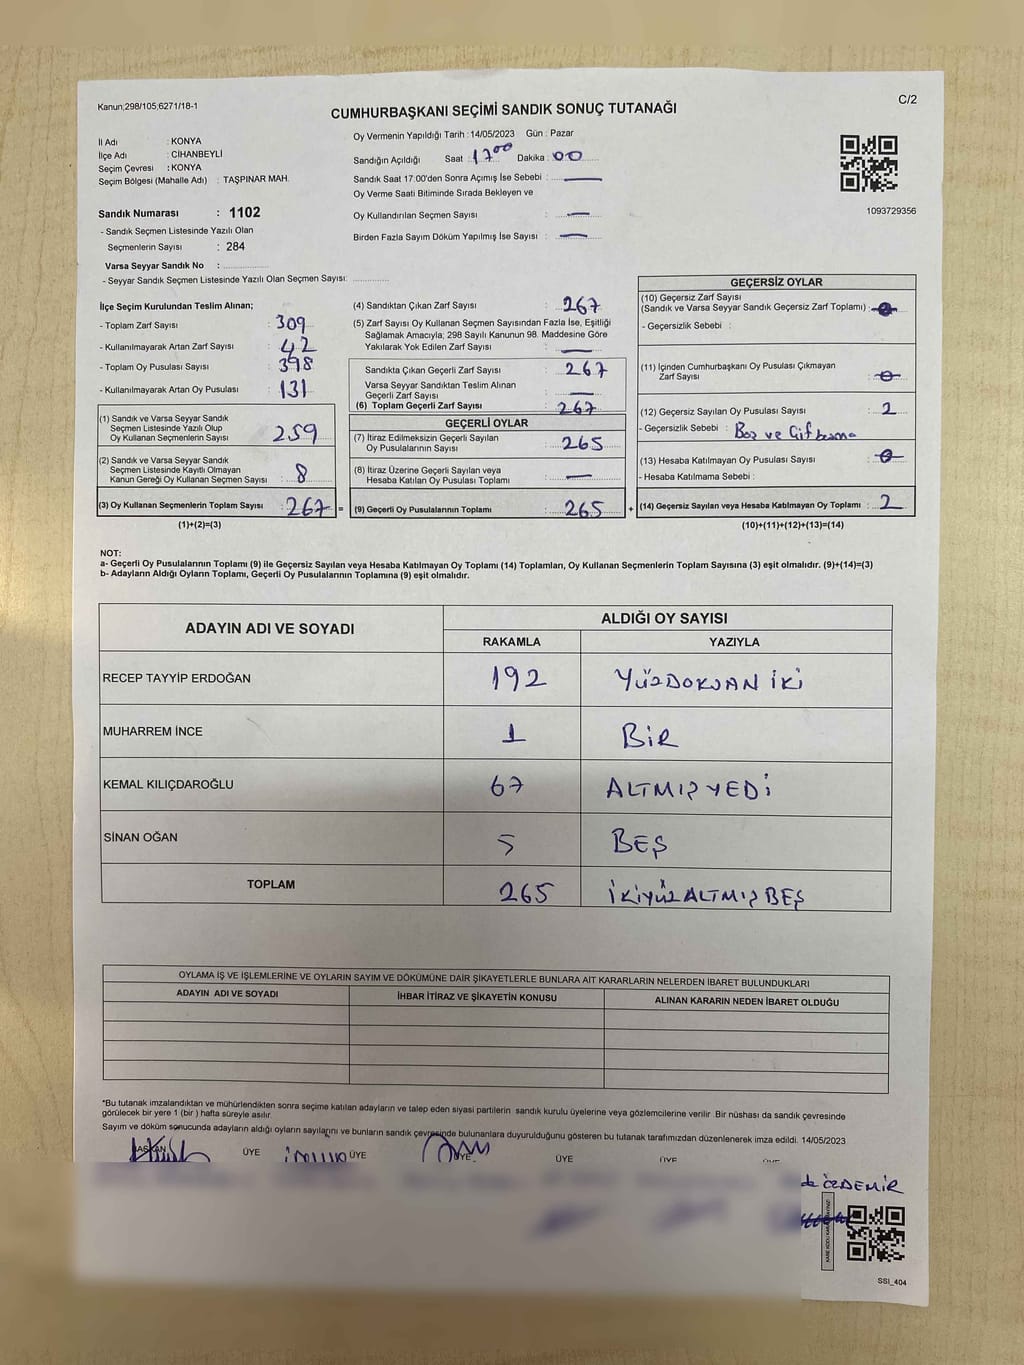 Kanun;298/105;6271/18-1
C/2
CUMHURBAŞKANI SEÇİMİ SANDIK SONUÇ TUTANAĞI
İl Adı : KONYA
İlçe Adı : CİHANBEYLİ
Seçim Çevresi : KONYA
Seçim Bölgesi (Mahalle Adı) : TAŞPINAR MAH.
Sandık Numarası : 1102
- Sandık Seçmen Listesinde Yazılı Olan
Seçmenlerin Sayısı : 284
Varsa Seyyar Sandık No :
- Seyyar Sandık Seçmen Listesinde Yazılı Olan Seçmen Sayısı:
Oy Vermenin Yapıldığı Tarih : 14/05/2023 Gün : Pazar
Sandığın Açıldığı Saat : 17 00 Dakika : 00
Sandık Saat 17:00'den Sonra Açımış İse Sebebi : —
Oy Verme Saati Bitiminde Sırada Bekleyen ve
Oy Kullandırılan Seçmen Sayısı : —
Birden Fazla Sayım Döküm Yapılmış İse Sayısı : —
1093729356
İlçe Seçim Kurulundan Teslim Alınan;
- Toplam Zarf Sayısı : 309
- Kullanılmayarak Artan Zarf Sayısı : 42
- Toplam Oy Pusulası Sayısı : 398
- Kullanılmayarak Artan Oy Pusulası : 131
(1) Sandık ve Varsa Seyyar Sandık
Seçmen Listesinde Yazılı Olup
Oy Kullanan Seçmenlerin Sayısı : 259
(2) Sandık ve Varsa Seyyar Sandık
Seçmen Listesinde Kayıtlı Olmayan
Kanun Gereği Oy Kullanan Seçmen Sayısı : 8
(3) Oy Kullanan Seçmenlerin Toplam Sayısı : 267 =
(1)+(2)=(3)
(4) Sandıktan Çıkan Zarf Sayısı : 267
(5) Zarf Sayısı Oy Kullanan Seçmen Sayısından Fazla İse, Eşitliği
Sağlamak Amacıyla; 298 Sayılı Kanunun 98. Maddesine Göre
Yakılarak Yok Edilen Zarf Sayısı : —
Sandıkta Çıkan Geçerli Zarf Sayısı : 267
Varsa Seyyar Sandıktan Teslim Alınan
Geçerli Zarf Sayısı : —
(6) Toplam Geçerli Zarf Sayısı : 267
GEÇERLİ OYLAR
(7) İtiraz Edilmeksizin Geçerli Sayılan
Oy Pusulasının Sayısı : 265
(8) İtiraz Üzerine Geçerli Sayılan veya
Hesaba Katılan Oy Pusulası Toplamı : —
(9) Geçerli Oy Pusulalarının Toplamı : 265 +
GEÇERSİZ OYLAR
(10) Geçersiz Zarf Sayısı
(Sandık ve Varsa Seyyar Sandık Geçersiz Zarf Toplamı) : 0
- Geçersizlik Sebebi :
(11) İçinden Cumhurbaşkanı Oy Pusulası Çıkmayan
Zarf Sayısı : 0
(12) Geçersiz Sayılan Oy Pusulası Sayısı : 2
- Geçersizlik Sebebi : Boş ve Çift basma
(13) Hesaba Katılmayan Oy Pusulası Sayısı : 0
- Hesaba Katılmama Sebebi :
(14) Geçersiz Sayılan veya Hesaba Katılmayan Oy Toplamı : 2
(10)+(11)+(12)+(13)=(14)
NOT:
a- Geçerli Oy Pusulalarının Toplamı (9) ile Geçersiz Sayılan veya Hesaba Katılmayan Oy Toplamı (14) Toplamları, Oy Kullanan Seçmenlerin Toplam Sayısına (3) eşit olmalıdır. (9)+(14)=(3)
b- Adayların Aldığı Oyların Toplamı, Geçerli Oy Pusulalarının Toplamına (9) eşit olmalıdır.
ADAYIN ADI VE SOYADI
ALDIĞI OY SAYISI
RAKAMLA YAZIYLA
RECEP TAYYİP ERDOĞAN 192 YÜZDOKSAN İKİ
MUHARREM İNCE 1 BİR
KEMAL KILIÇDAROĞLU 67 ALTMIŞ YEDİ
SİNAN OĞAN 5 BEŞ
TOPLAM 265 İKİYÜZALTMIŞBEŞ
OYLAMA İŞ VE İŞLEMLERİNE VE OYLARIN SAYIM VE DÖKÜMÜNE DAİR ŞİKAYETLERLE BUNLARA AİT KARARLARIN NELERDEN İBARET BULUNDUKLARI
ADAYIN ADI VE SOYADI İHBAR İTİRAZ VE ŞİKAYETİN KONUSU ALINAN KARARIN NEDEN İBARET OLDUĞU
*Bu tutanak imzalandıktan ve mühürlendikten sonra seçime katılan adayların ve talep eden siyasi partilerin sandık kurulu üyelerine veya gözlemcilerine verilir. Bir nüshası da sandık çevresinde
görülecek bir yere 1 (bir ) hafta süreyle asılır.
Sayım ve döküm sonucunda adayların aldığı oyların sayılarını ve bunların sandık çevresinde bulunanlara duyurulduğunu gösteren bu tutanak tarafımızdan düzenlenerek imza edildi. 14/05/2023
BAŞKAN ÜYE ÜYE ÜYE ÜYE ÜYE
ÖZDEMİR
SSİ_404